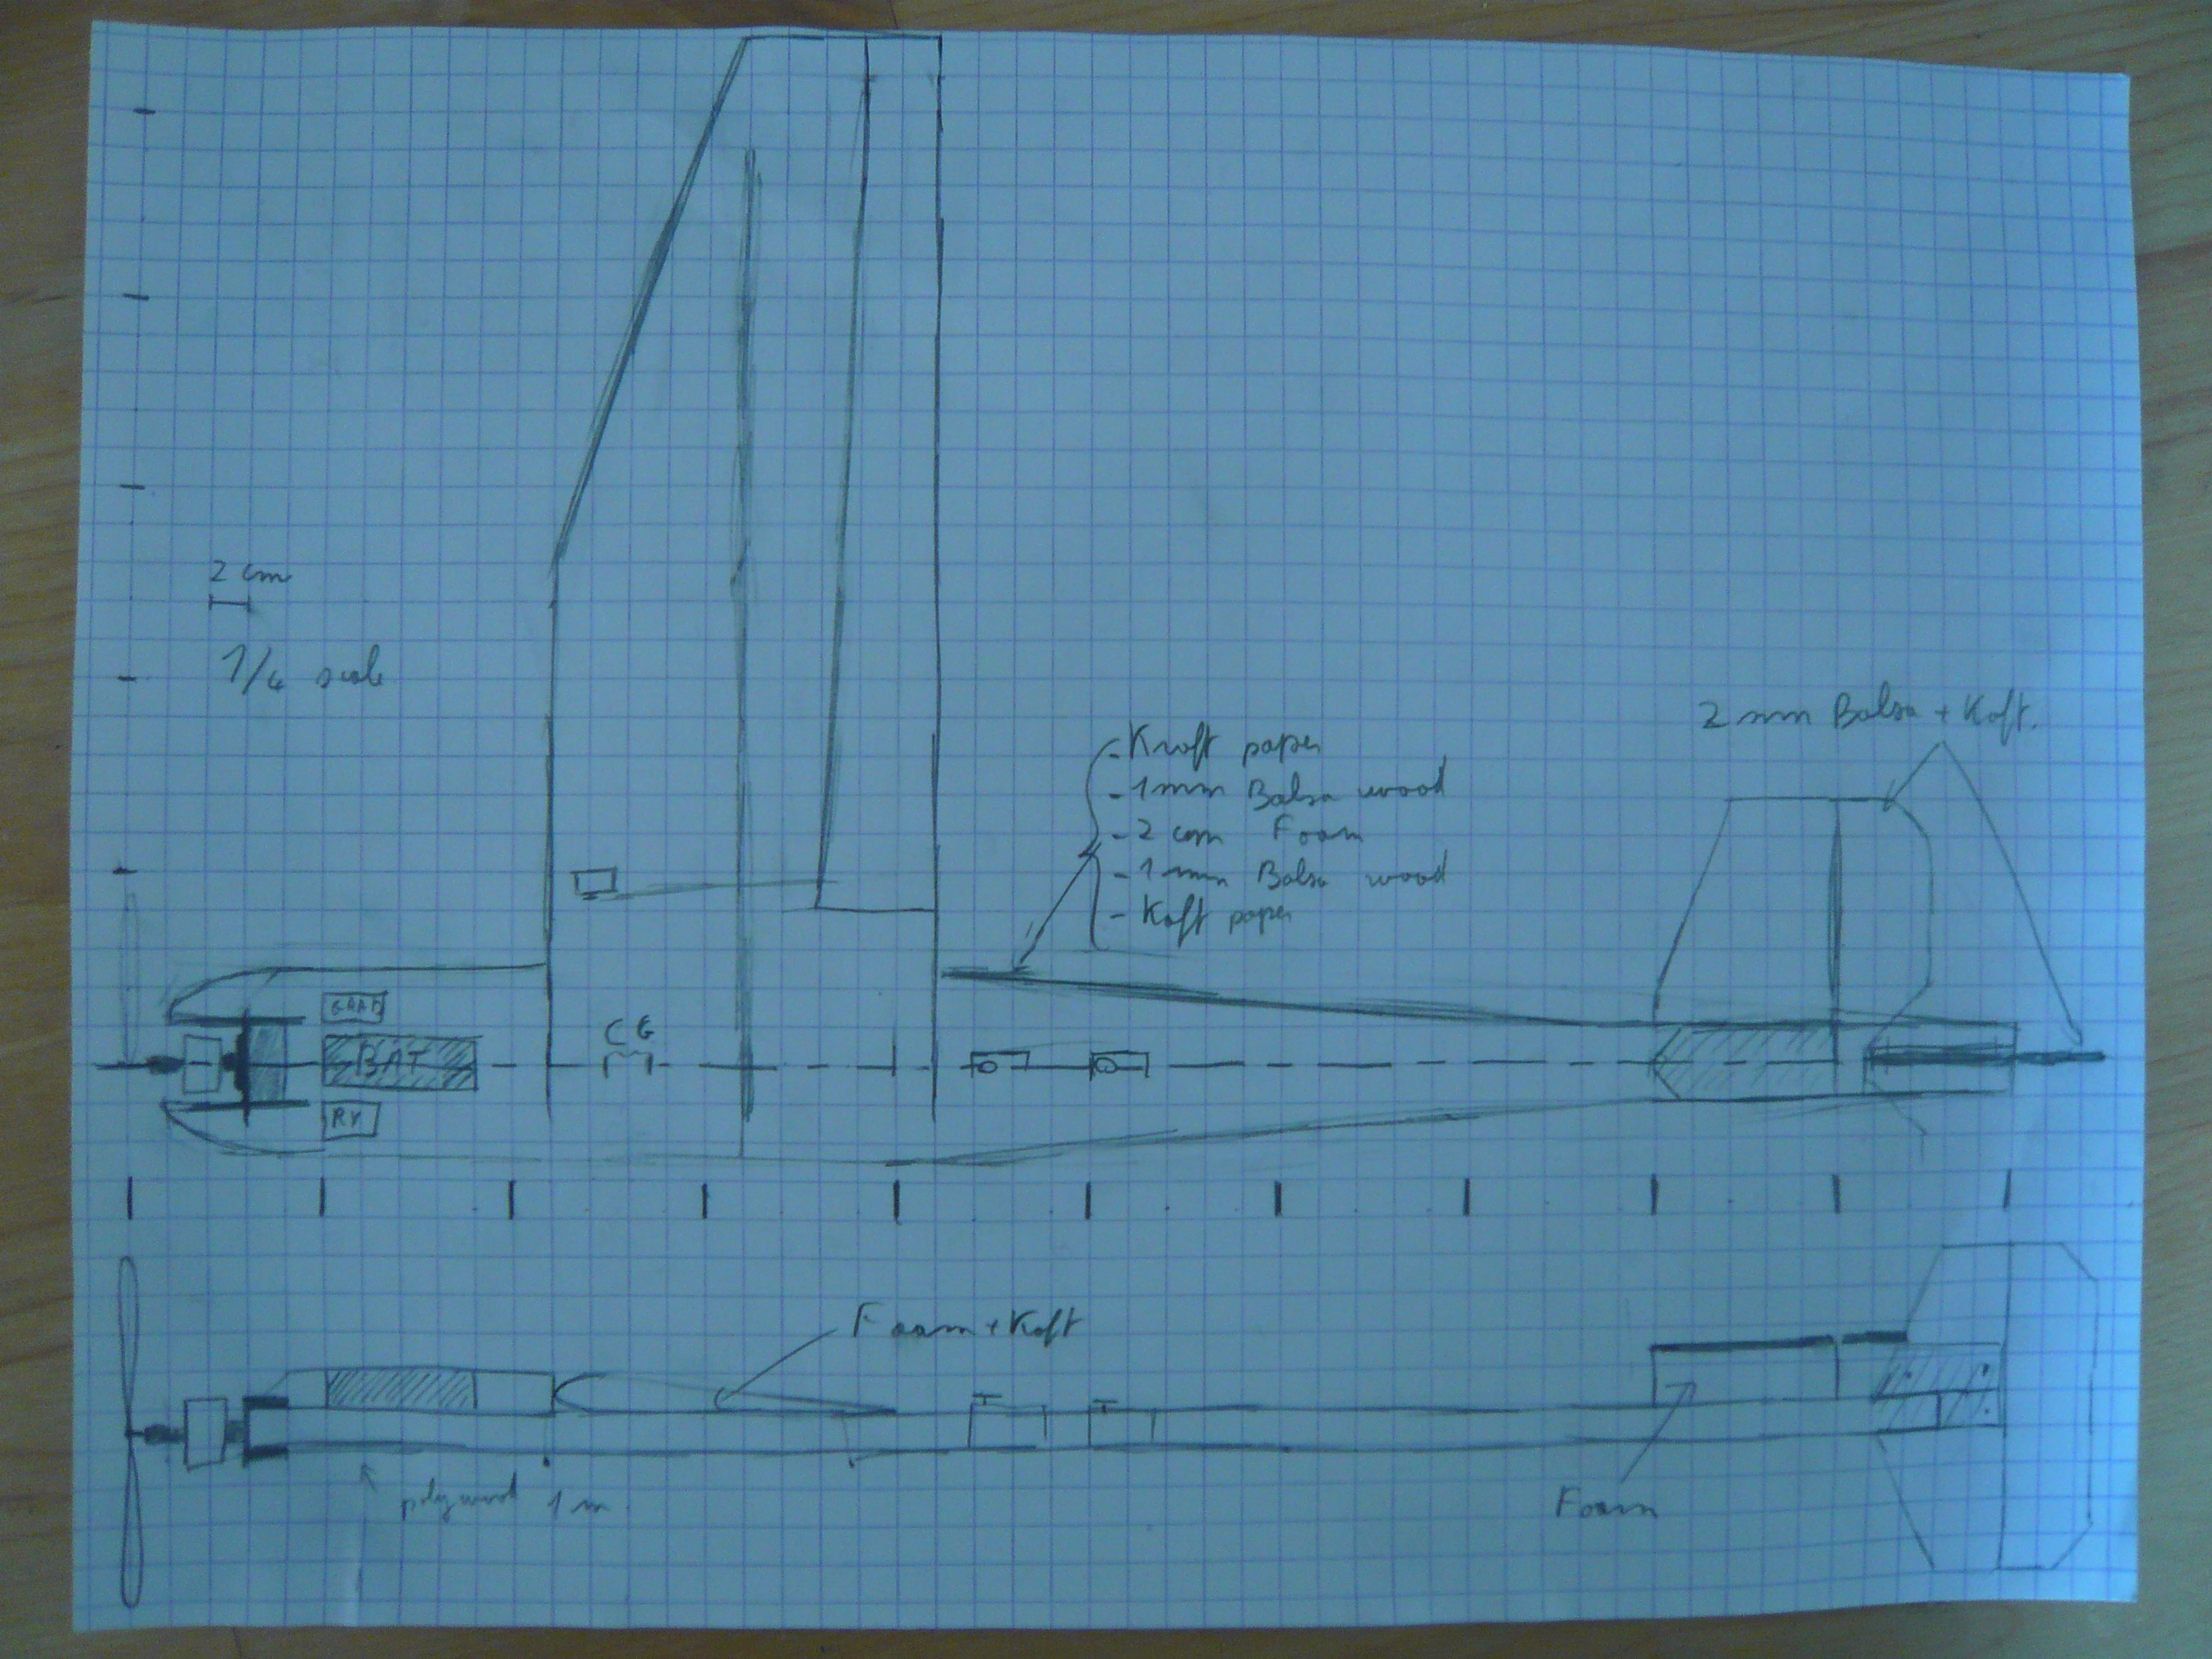 2 cm
1/4 scale
- Kraft paper
- 1mm Balsa wood
- 2 cm Foam
- 1 mm Balsa wood
- Kaft paper
2 mm Balsa + Kaft.
CG
BAT
RX
Foam + Kaft
polywood 1 m
Foam